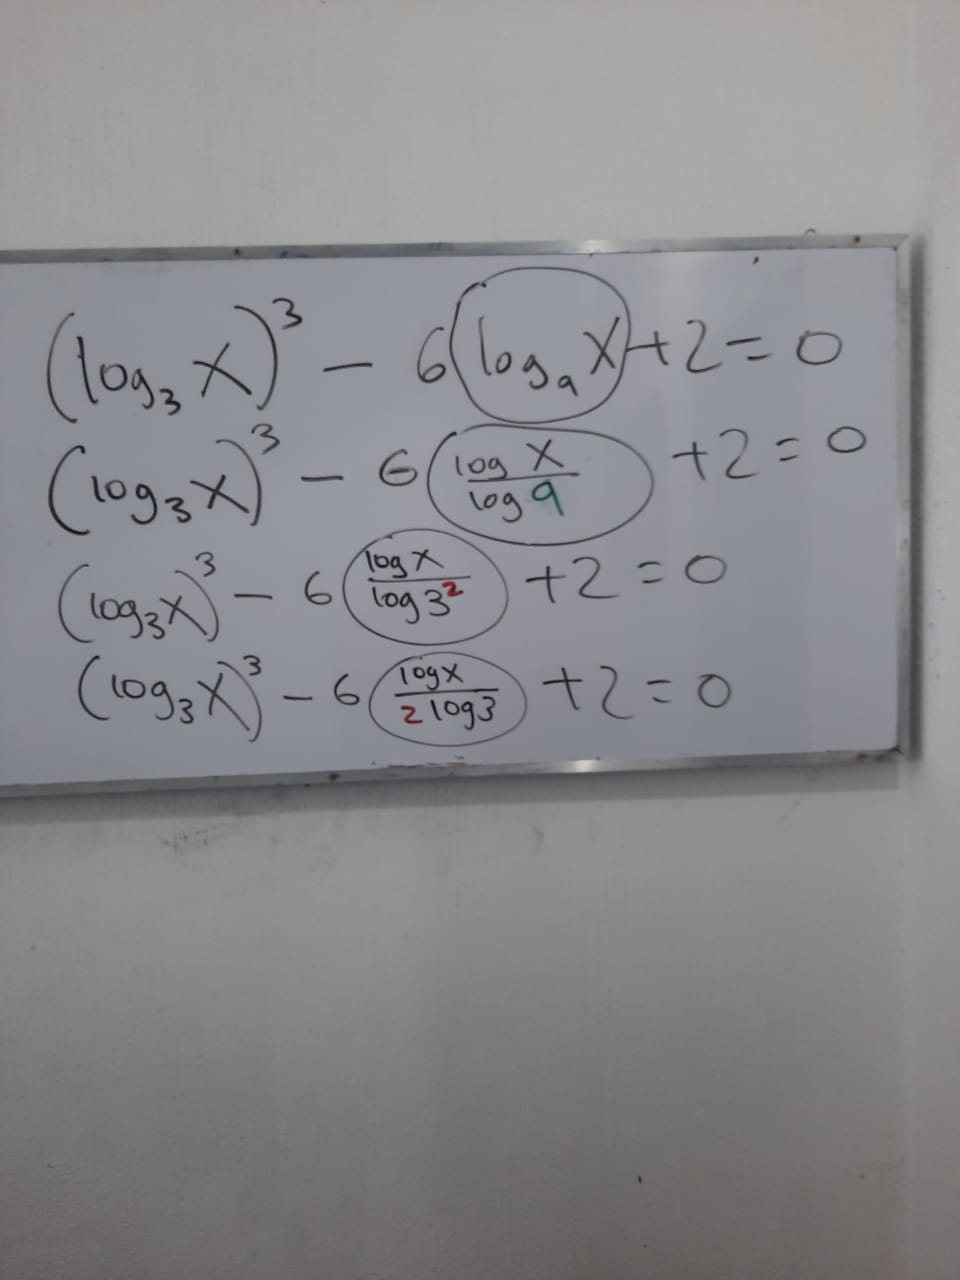 (log₃ X)³ − 6(log₉ X)+2=0
(log₃X)³ − 6(log X / log 9) +2=0
(log₃X)³ − 6(log X / log 3²) +2=0
(log₃X)³ − 6(log X / 2 log3) +2=0